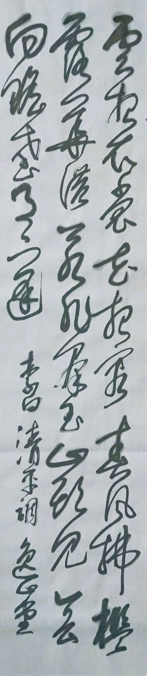 雲想衣裳花想容春風拂檻
露華濃若非群玉山頭見會
向瑤臺月下逢 李白 清平調